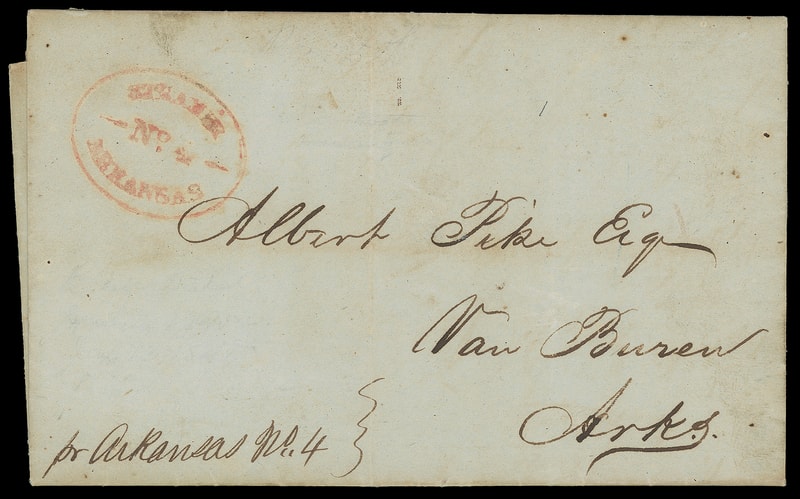 STEAMER
No. 4
ARKANSAS
Albert Pike Esq
Van Buren
Arks.
pr Arkansas No. 4